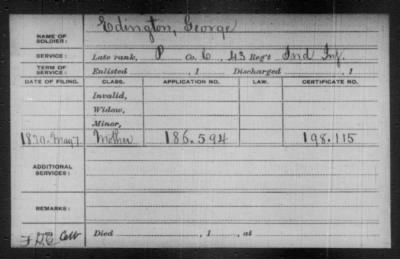 NAME OF SOLDIER: Edington, George
SERVICE: Late rank, P Co. C, 43 Reg't Ind Inf.
TERM OF SERVICE: Enlisted , 1 Discharged , 1
DATE OF FILING. CLASS. APPLICATION NO. LAW. CERTIFICATE NO.
Invalid,
Widow,
Minor,
1870. May 7 Mother 186.594 198.115
ADDITIONAL SERVICES:
REMARKS:
Died , 1 , at